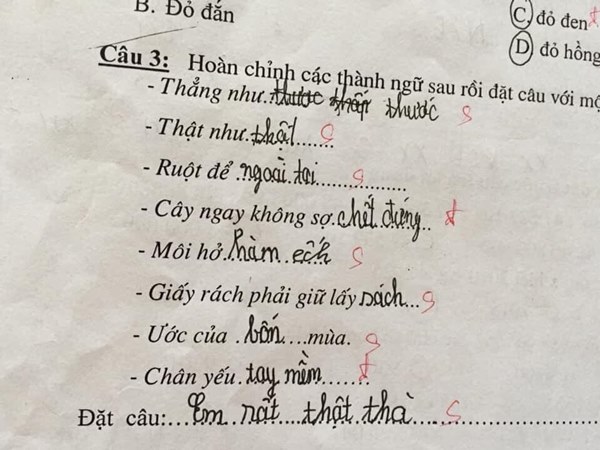 B. Đỏ đắn
C. đỏ đen đ
D) đỏ hồng
Câu 3: Hoàn chỉnh các thành ngữ sau rồi đặt câu với mộ
- Thẳng như..thước thẳn thước s
- Thật như.thật....... s
- Ruột để .ngoài.tai............... s
- Cây ngay không sợ.chết.đứng.. đ
- Môi hở.hàm.ếch s
- Giấy rách phải giữ lấy sách...s
- Ước của .bốn....mùa. s
- Chân yếu.tay mềm....... đ
Đặt câu:....Em rất....thật thà.... s